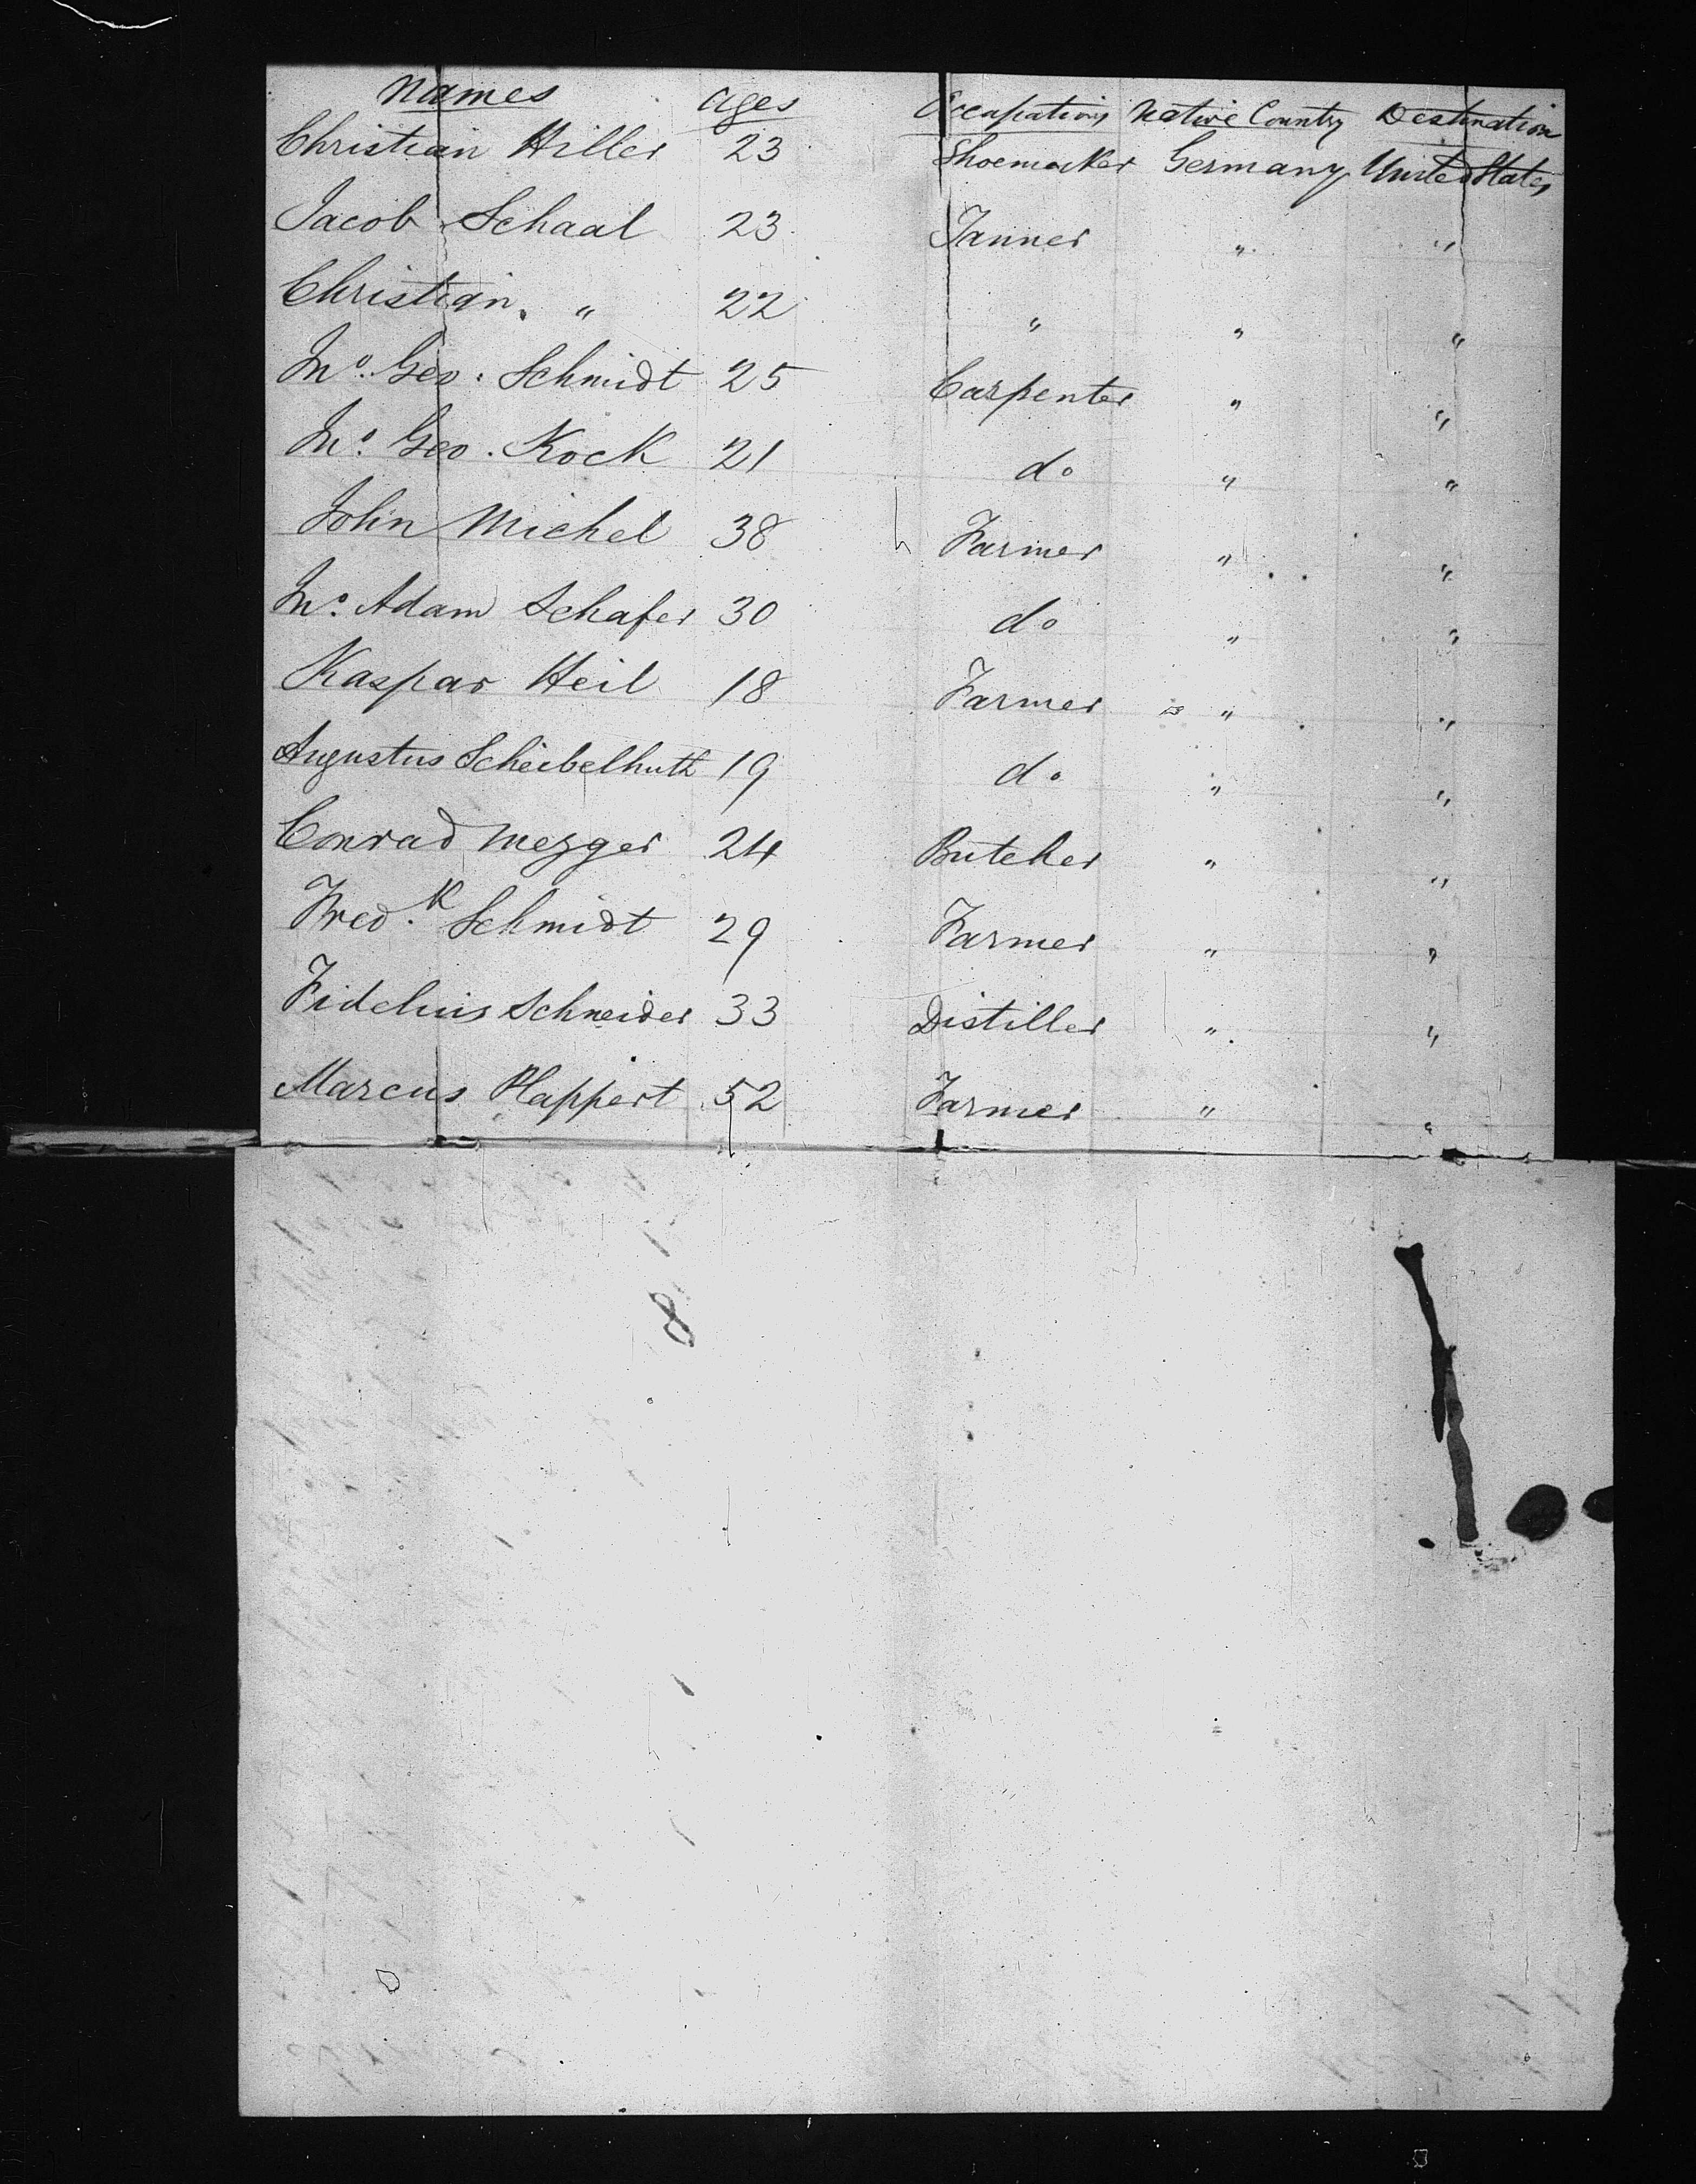 Names ages Occupations Native Country Destination
Christian Hiller 23 Shoemaker Germany United States
Jacob Schaal 23 Tanner " "
Christian " 22 " " "
Jno. Geo. Schmidt 25 Carpenter " "
Jno. Geo. Kock 21 do " "
John Michel 38 Farmer " "
Jno. Adam Schafer 30 do " "
Kaspar Heil 18 Farmer " "
Augustus Scheibelhuth 19 do " "
Conrad Mezger 24 Butcher " "
Fred.k Schmidt 29 Farmer " "
Fidelius Schneider 33 Distiller " "
Marcus Happert 52 Farmer " "
8